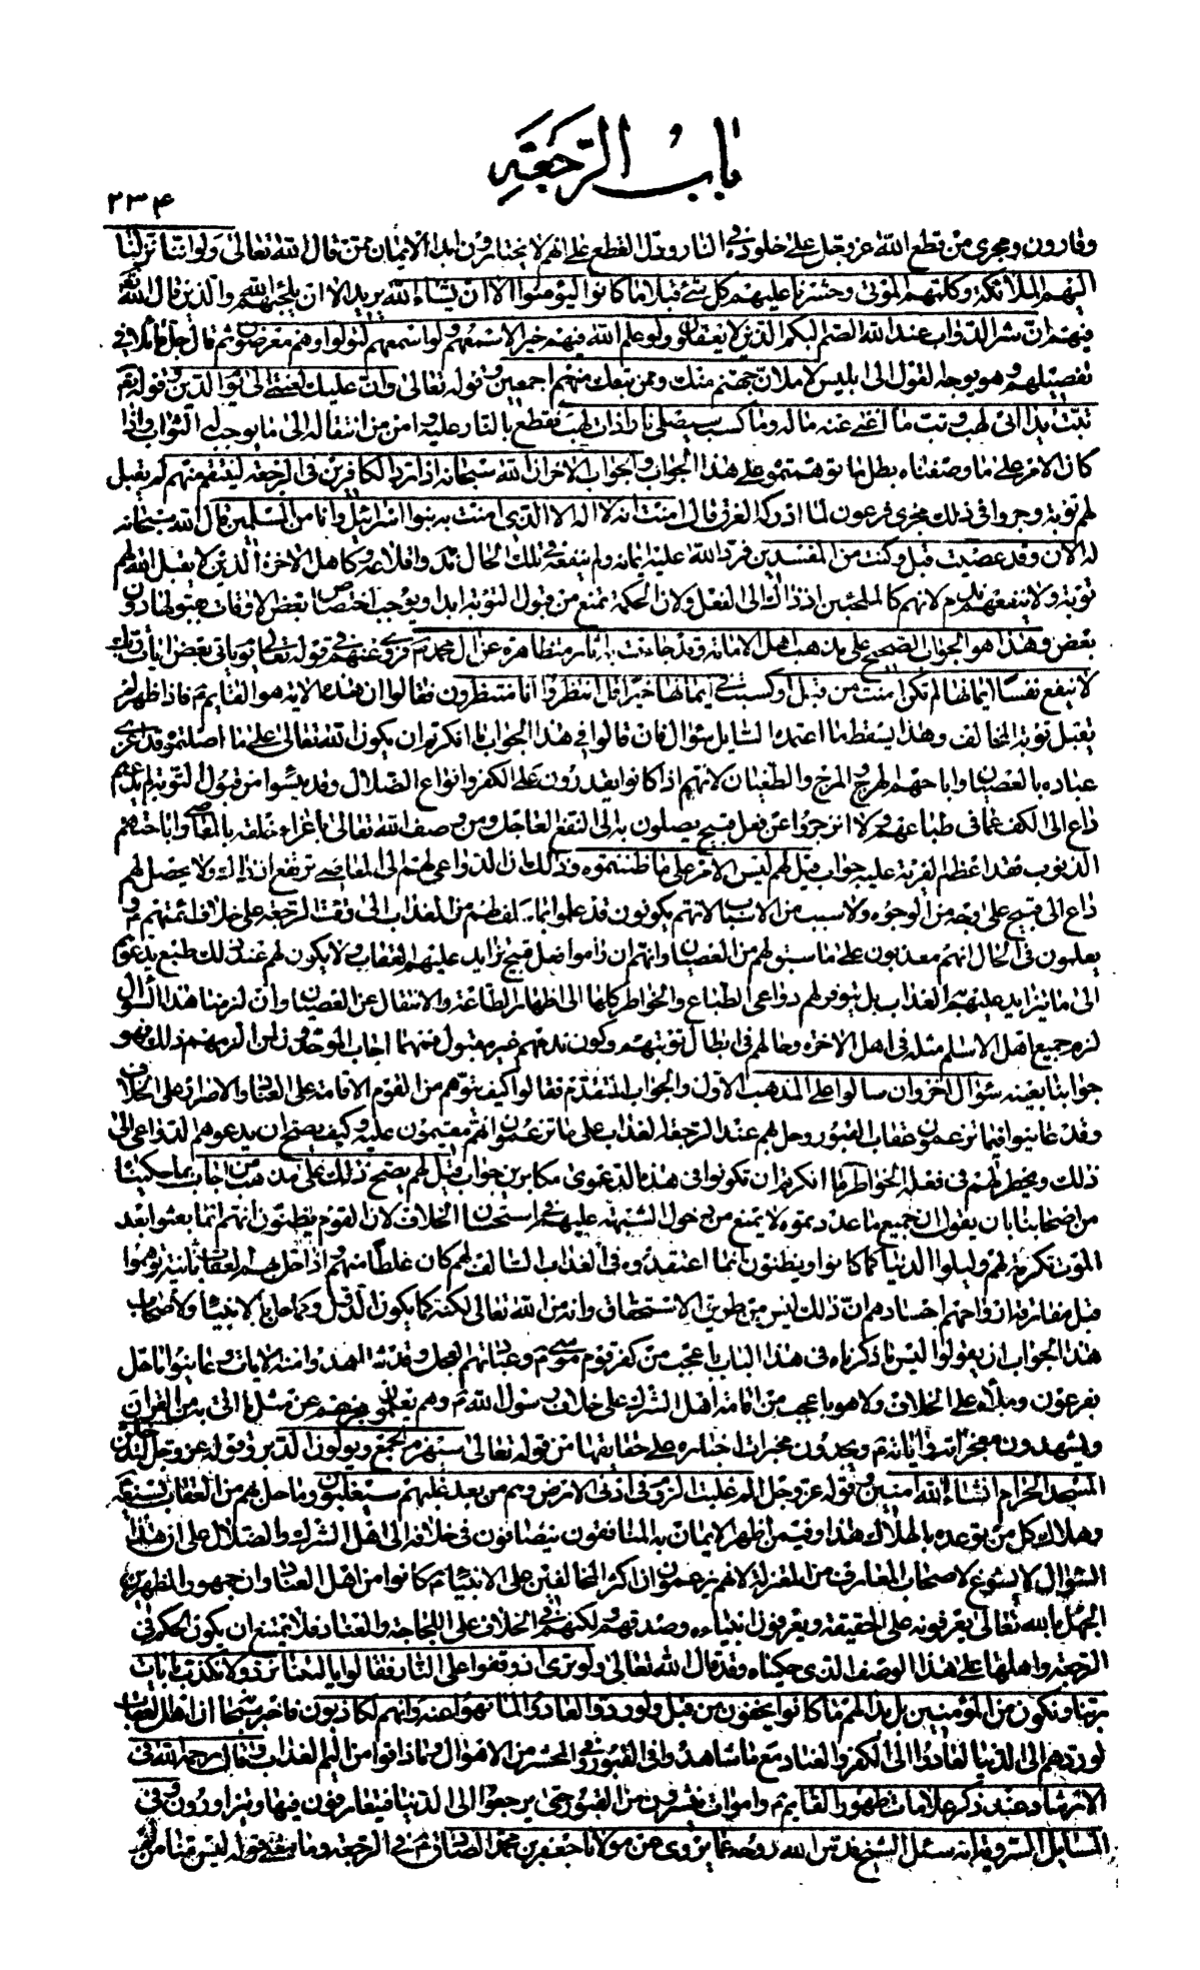 باب الرجعة
٢٣۴
وقارون ومن يجرى من قطع الله عز وجل على خلوده في النار ودل القطع على انهم لا يختارون ابدا الايمان ممن قال الله تعالى ولو اننا نزلنا
اليهم الملائكة وكلمهم الموتى وحشرنا عليهم كل شئ قبلا ما كانوا ليؤمنوا الا ان يشاء الله يريد الا ان يلجئهم الله والذين قال الله
فيهم ان شر الدواب عند الله الصم البكم الذين لا يعقلون ولو علم الله فيهم خيرا لاسمعهم ولو اسمعهم لتولوا وهم معرضون ثم قال جل قائلا في
تفصيلهم وهو يوجه القول الى ابليس لاملان جهنم منك وممن تبعك منهم اجمعين وقوله تعالى وان عليك لعنتي الى يوم الدين وقوله تع
تبت يدا ابى لهب وتب ما اغنى عنه ماله وما كسب سيصلى نارا ذات لهب فقطع بالنار عليه وامن من انتقاله الى ما يوجب له الثواب واذا
كان الامر على ما وصفناه بطل ما توهمتموه على هذا الجواب والجواب الاخر ان الله سبحانه اذا رد الكافرين في الرجعة لينتقم منهم لم يقبل
لهم توبة وجروا في ذلك مجرى فرعون لما ادركه الغرق قال امنت انه لا اله الا الذى امنت به بنو اسرائيل وانا من المسلمين قال الله سبحانه
له الان وقد عصيت قبل وكنت من المفسدين فرد الله عليه ايمانه ولم ينفعه في تلك الحال ندمه واقلاعه وكاهل الاخرة الذين لا يقبل الله لهم
توبة ولا ينفعهم ندم لانهم كالملجئين اذ ذاك الى الفعل ولان الحكمة تمنع من قبول التوبة ابدا ويوجب اختصاص بعض الاوقات بقبولها دون
بعض وهذا هو الجواب الصحيح على مذهب اهل الامامة وقد جاءت به اثار متظاهرة عن ال محمد ع فروى عنهم في قوله تعالى يوم ياتى بعض ايات ربك
لا ينفع نفسا ايمانها لم تكن امنت من قبل او كسبت في ايمانها خيرا قل انتظروا انا منتظرون فقالوا ان هذه الاية هو القايم ع فاذا ظهر لم
يقبل توبة المخالف وهذا يسقط ما اعتمده السايل سؤال فان قالوا في هذا الجواب ما انكرتم ان يكون الله تعالى على ما اصلتموه قد اغرى
عباده بالعصيان واباحهم الهرج والمرج والطغيان لانهم اذا كانوا يقدرون على الكفر وانواع الضلال وقد يئسوا من قبول التوبة لم يدعهم
داع الى الكف عما في طباعهم ولا انزجروا عن فعل قبيح يصلون به الى النفع العاجل ومن وصف الله تعالى باغراء خلقه بالمعاصى واباحتهم
الذنوب فقد اعظم الفرية عليه جواب قيل لهم ليس الامر على ما ظننتموه وذلك ان الدواعى لهم الى المعاصى ترتفع اذ ذاك ولا يحصل لهم
داع الى قبيح على وجه من الوجوه ولا سبب من الاسباب لانهم يكونون قد علموا بما سلف لهم من العذاب الى وقت الرجعة على خلاف ائمتهم ع و
يعلمون في الحال انهم معذبون على ما سبق لهم من العصيان وانهم ان راموا فعل قبيح تزايد عليهم العقاب ولا يكون لهم عند ذلك طبع يدعوهم
الى ما يتزايد عليهم به العذاب بل يتوفر لهم دواعى الطباع والخواطر كلها الى اظهار الطاعة والانتقال عن العصيان وان لزمنا هذا السؤال
لزم جميع اهل الاسلام مثله في اهل الاخرة وحالهم في ابطال توبتهم وكون ندمهم غير مقبول فمهما اجاب الموحدون لمن الزمهم ذلك فهو
جوابنا بعينه سؤال اخر وان سالوا على المذهب الاول والجواب المتقدم فقالوا كيف يتوهم من القوم الاقامة على العناد والاصرار على الخلاف
وقد عاينوا فيما تزعمون عقاب القبور وحل بهم عند الرجعة العذاب على ما تزعمون انهم مقيمون عليه وكيف يصح ان يدعوهم الدواعى الى
ذلك ويخطر لهم في فعله الخواطر ما انكرتم ان تكونوا في هذه الدعوى مكابرين جواب قيل لهم يصح ذلك على مذهب من اجاب بما حكيناه
من اصحابنا بان يقول ان جميع ما عددتموه لا يمنع من دخول الشبهة عليهم في استحسان الخلاف لان القوم يظنون انهم انما بعثوا بعد
الموت تكرمة لهم وليلوا الدنيا كما كانوا ويظنون ان ما اعتقدوه في العذاب السالف لهم كان غلطا منهم واذا حل بهم العقاب ثانية توهموا
قبل مفارقة ارواحهم اجسادهم ان ذلك ليس من طريق الاستحقاق وانه من الله تعالى لكنه كما يكون الدول وكما حل بالانبياء ولاصحاب
هذا الجواب ان يقولوا ليس ما ذكرناه في هذا الباب باعجب من كفر قوم موسى ع وعبادتهم العجل وقد شاهدوا منه الايات وعاينوا ما حل
بفرعون وملائه على الخلاف ولا هو باعجب من اقامة اهل الشرك على خلاف رسول الله ص وهم يعلمون عجزهم عن مثل ما اتى به من القران
ويشهدون معجزاته واياته ع ويجدون مخبرات اخباره على حقايقها من قوله تعالى سيهزم الجمع ويولون الدبر وقوله عز وجل لتدخلن
المسجد الحرام انشاء الله امنين وقوله عز وجل الم غلبت الروم في ادنى الارض وهم من بعد غلبهم سيغلبون وما حل بهم من العقاب بسيفه ع
وهلاك كل من توعده بالهلاك هذا وفيمن اظهر الايمان به المنافقون ينضافون في خلافه الى اهل الشرك والضلال على ان هذا
السؤال لا يسوغ لاصحاب المعارف من المعتزلة لانهم يزعمون ان اكثر المخالفين على الانبياء ع كانوا من اهل العناد وان جمهور المظهرين
الجهل بالله تعالى يعرفونه على الحقيقة ويعرفون انبياءه وصدقهم ولكنهم في الخلاف على اللجاجة والعناد فلا يمتنع ان يكون الحكم في
الرجعة واهلها على هذا الوصف الذى حكيناه وقد قال الله تعالى ولو ترى اذ وقفوا على النار فقالوا يا ليتنا نرد ولا نكذب بايات
ربنا ونكون من المؤمنين بل بدا لهم ما كانوا يخفون من قبل ولو ردوا لعادوا لما نهوا عنه وانهم لكاذبون فاخبر سبحانه ان اهل العقاب
لو ردهم الى الدنيا لعادوا الى الكفر والعناد مع ما شاهدوا في القبور وفي المحشر من الاهوال وما ذاقوا من اليم العذاب وقال رحمه الله في
الارشاد عند ذكر علامات ظهور القايم ع واموات ينشرون من القبور حتى يرجعوا الى الدنيا فيتعارفون فيها ويتزاورون وفي
المسايل السروية انه سئل الشيخ قدس الله روحه عما يروى عن مولانا جعفر بن محمد الصادق ع في الرجعة وما معنى قوله ليس منا من لم